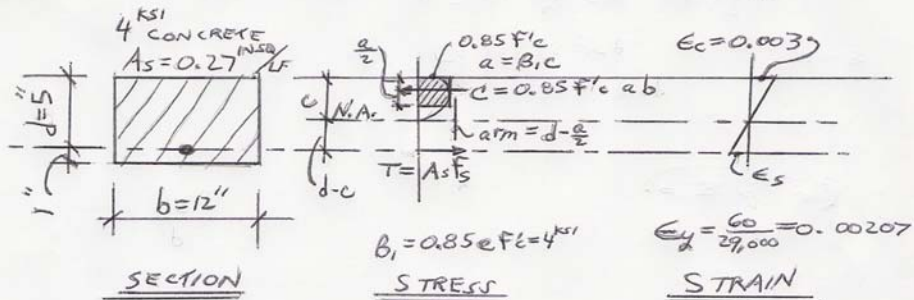 4 KSI CONCRETE
As = 0.27 IN SQ/LF
d=5"
1"
b=12"
SECTION
a/2
0.85 f'c
a = β₁c
C = 0.85 f'c ab
c
N.A.
arm = d-a/2
d-c
T= Asfs
β₁ = 0.85 @ f'c = 4 KSI
STRESS
Ec = 0.003
Es
Ey = 60/29,000 = 0.00207
STRAIN